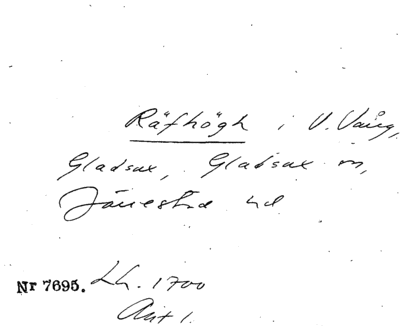 Räfhögh i V. Vång,
Gladsax, Gladsax sn,
Järrestad hd
Nr 7695. Lh. 1700
Akt 1.